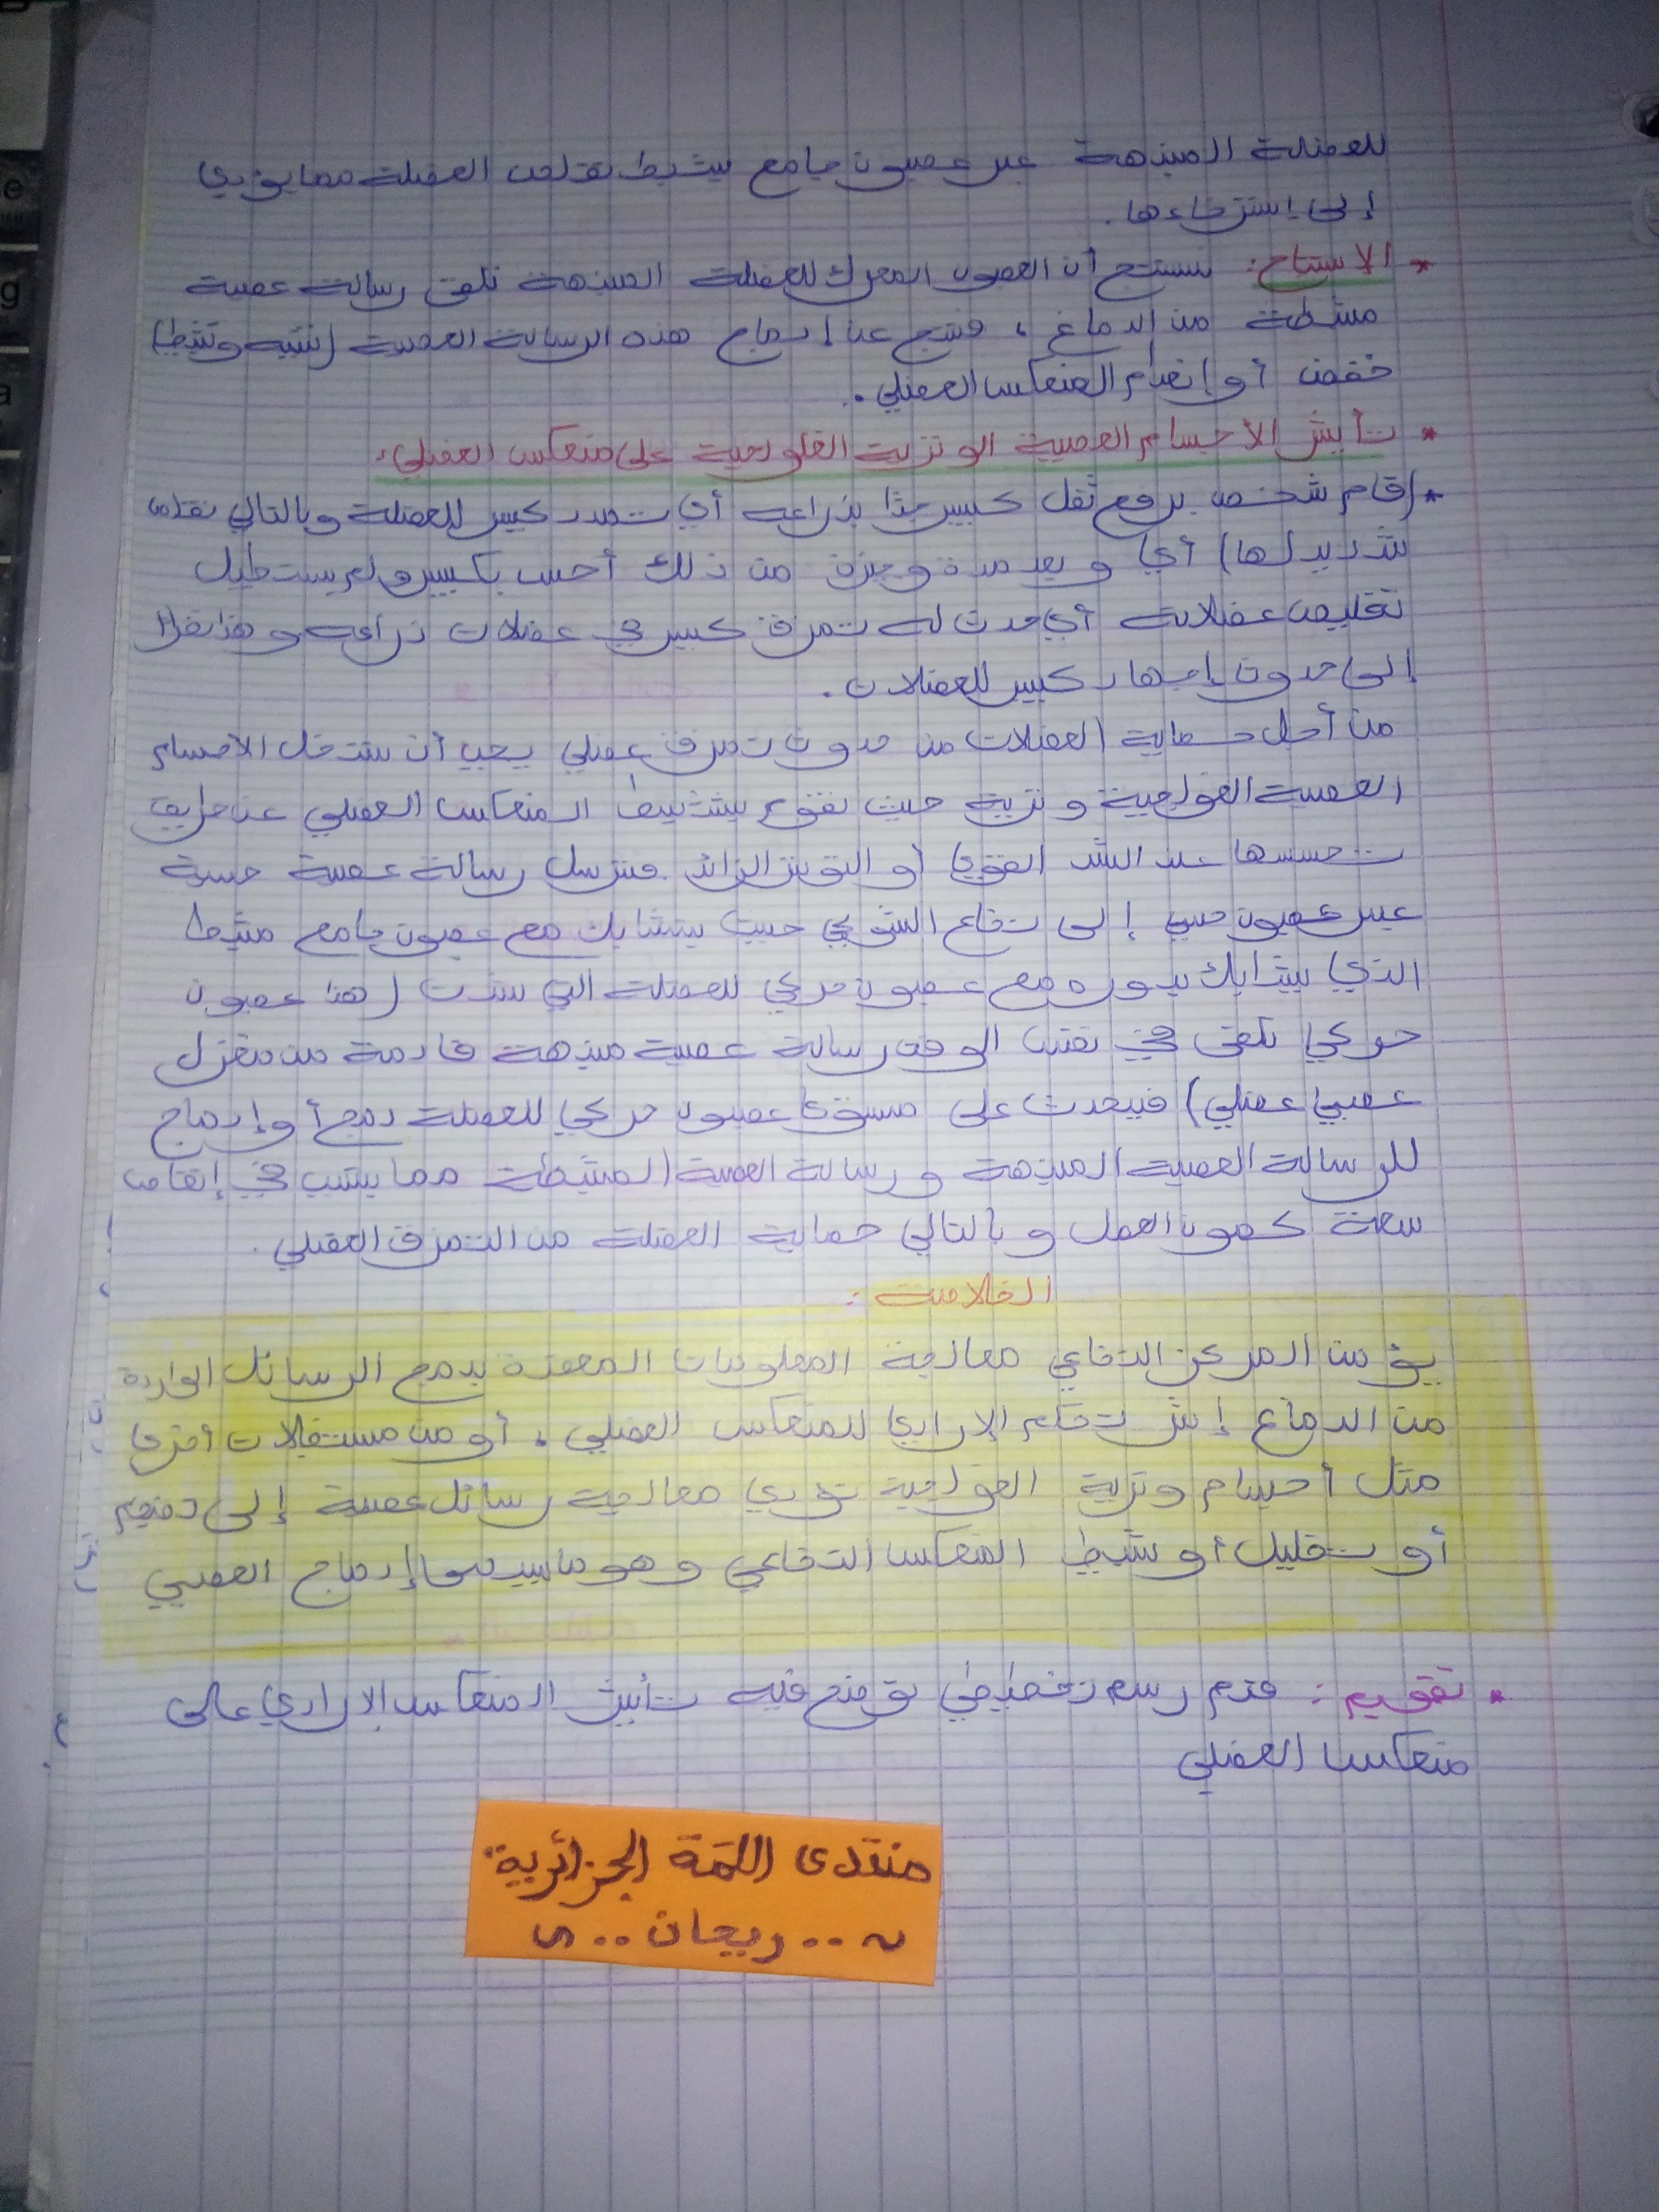 للعضلة المنبهة عبر عصبون جامع يثبط تقلص العضلة مما يؤدي
إلى إسترخاءها.
* الإستنتاج: نستنتج أن العصبون المحرك للعضلة المنبهة تلقى رسالة عصبية
مثبطة من الدماغ، فنتج عن إدماج هذه الرسالة العصبية (تنبيه وتثبيط)
خفض أو إنعدام المنعكس العضلي.
* تأثير الأجسام العصبية الوترية الغولوجية على منعكس العضلي:
* (قام شخص برفع ثقل كبير جدا بذراعه أي تمدد كبير للعضلة وبالتالي تقلص
شديد لها) أي وبعد مدة وجيزة من ذلك أحس بكسر ولم يستطيل
تقليص عضلاته أي حدث له تمزق كبير في عضلات ذراعه وهذا نظرا
إلى حدوث إجهاد كبير للعضلات.
من أجل حماية العضلات من حدوث تمزق عضلي يجب أن تتدخل الأجسام
العصبية الغولجية وترية حيث تقوم بتثبيط المنعكس العضلي عن طريق
تحسسها عند الشد القوي أو التوتر الزائد. فترسل رسالة عصبية حسية
عبر عصبون حسي إلى نخاع الشوكي حيث يتشابك مع عصبون جامع مثبط
الذي يتشابك بدوره مع عصبون حركي للعضلة التي شدت (هذا عصبون
حركي تلقى في نفس الوقت رسالة عصبية منبهة قادمة من مغزل
عصبي عضلي) فيحدث على مستوى عصبون حركي للعضلة دمج أو إدماج
للرسالة العصبية المنبهة ورسالة العصبية المثبطة مما يتسبب في إنقاص
سعة كمون العمل وبالتالي حماية العضلة من التمزق العضلي.
الخلاصة:
يؤمن المركز النخاعي معالجة المعلومات المعقدة بدمج الرسائل الواردة
من الدماغ إثر تحكم الإرادي للمنعكس العضلي، أو من مستقبلات أخرى
مثل أجسام وترية الغولجية تؤدي معالجة رسائل عصبية إلى تضخيم
أو تقليل أو تثبيط المنعكس النخاعي وهو ما يسمى إدماج العصبي
* تقويم: قدم رسم تخطيطي توضح فيه تأثير المنعكس الإرادي على
منعكس العضلي
منتدى اللمة الجزائرية
~ .. ريحان .. ~